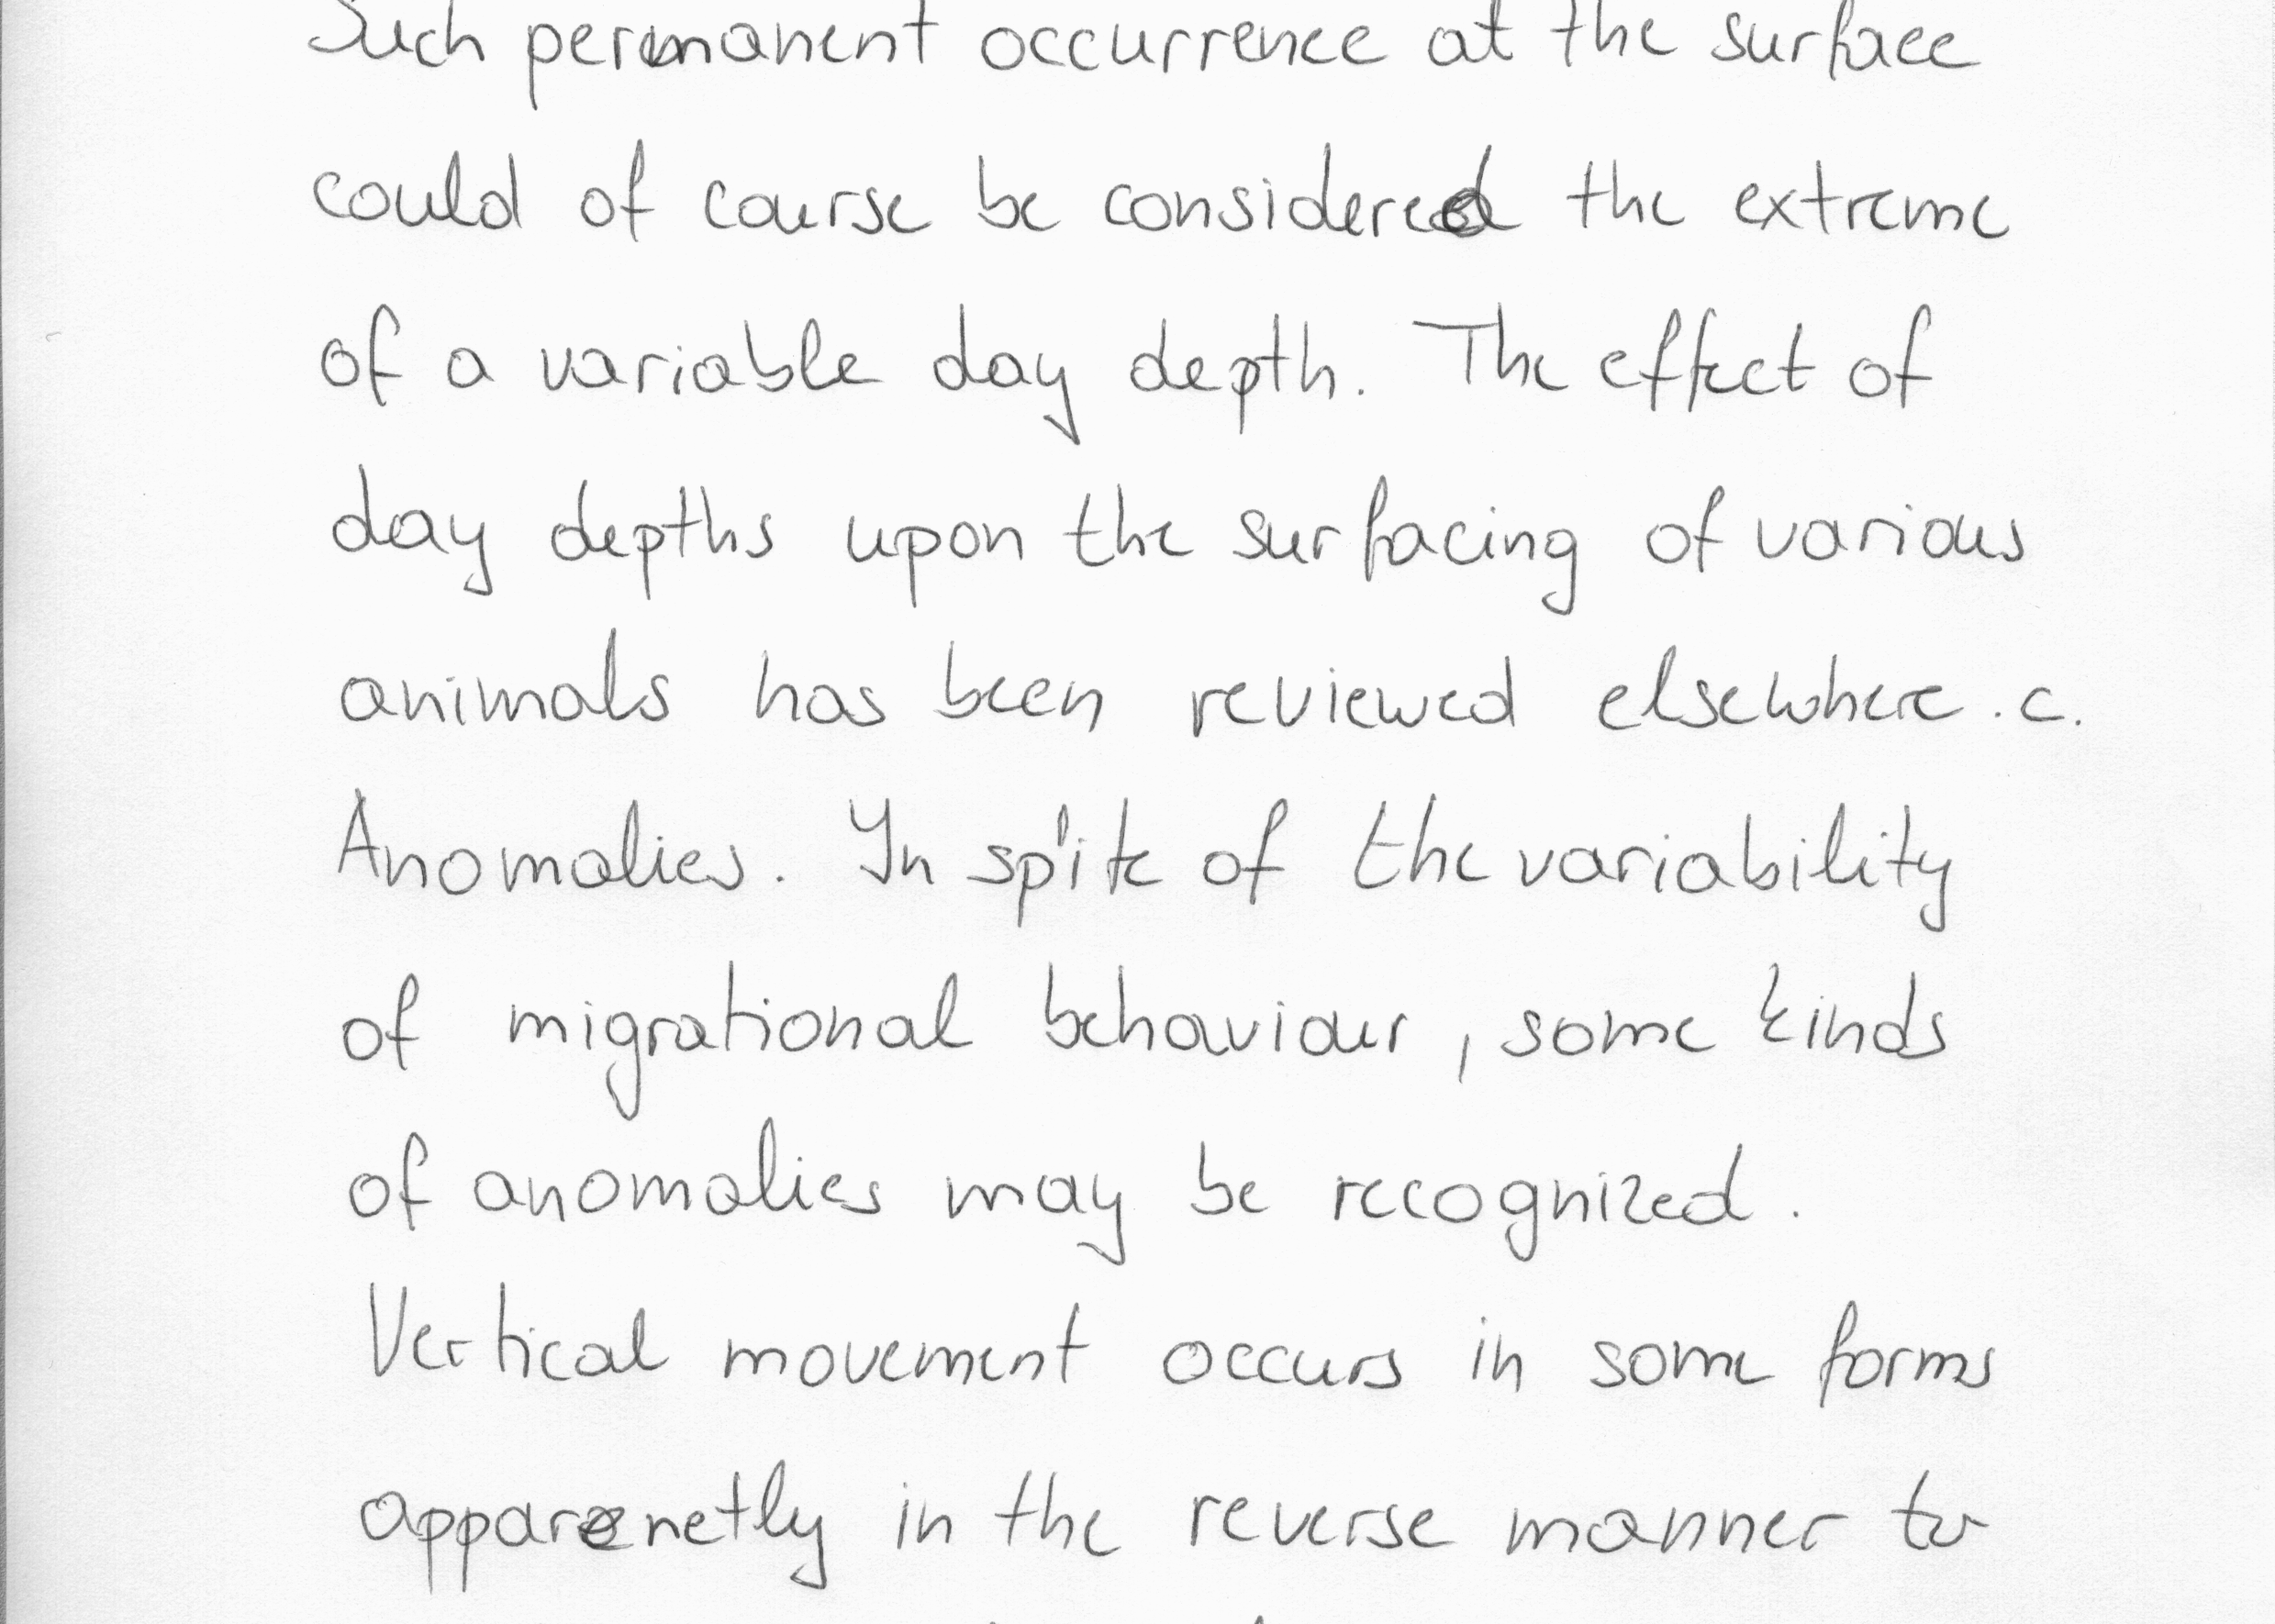 Such permanent occurrence at the surface
could of course be considered the extreme
of a variable day depth. The effect of
day depths upon the surfacing of various
animals has been reviewed elsewhere. c.
Anomalies. In spite of the variability
of migrational behaviour, some kinds
of anomalies may be recognized.
Vertical movement occurs in some forms
apparenetly in the reverse manner to